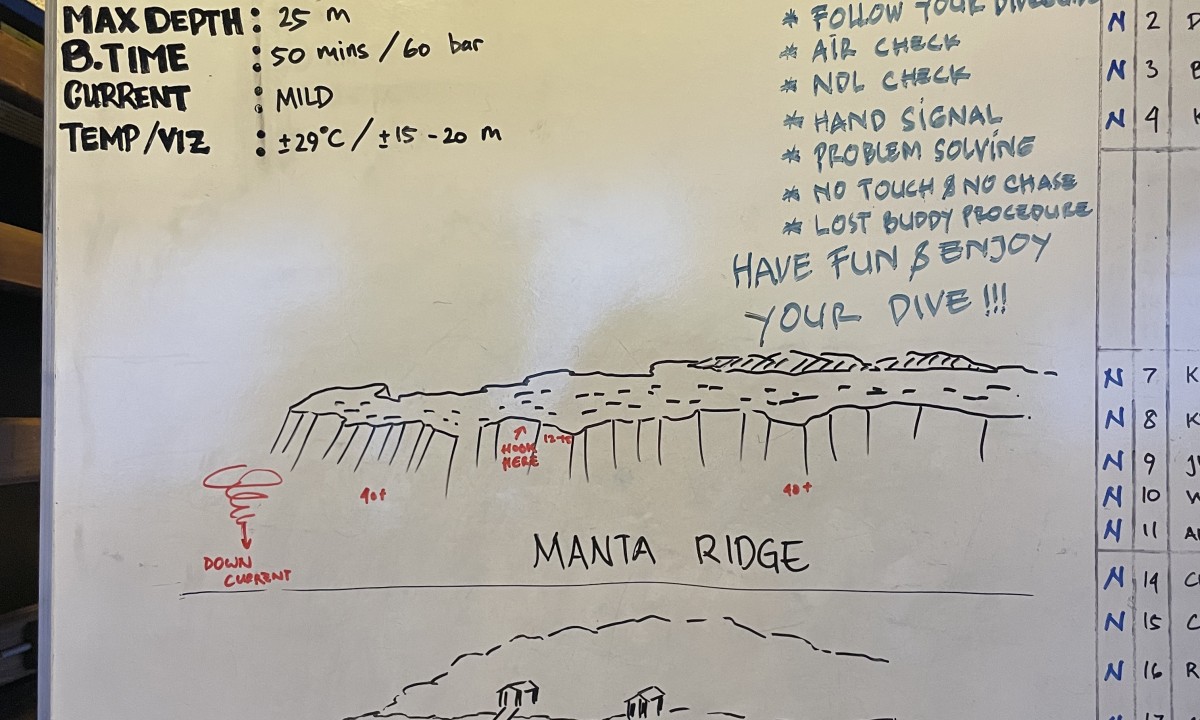 MAX DEPTH : 25 m
B.TIME : 50 mins / 60 bar
CURRENT : MILD
TEMP/VIZ : ±29°C / ±15 - 20 m
* FOLLOW YOUR
* AIR CHECK
* NDL CHECK
* HAND SIGNAL
* PROBLEM SOLVING
* NO TOUCH & NO CHASE
* LOST BUDDY PROCEDURE
HAVE FUN & ENJOY
YOUR DIVE !!!
HOOK
HERE
40+
40+
DOWN
CURRENT
MANTA RIDGE
N 2
N 3
N 4
N 7 K
N 8 K
N 9
N 10
N 11
N 14
N 15 C
N 16 R